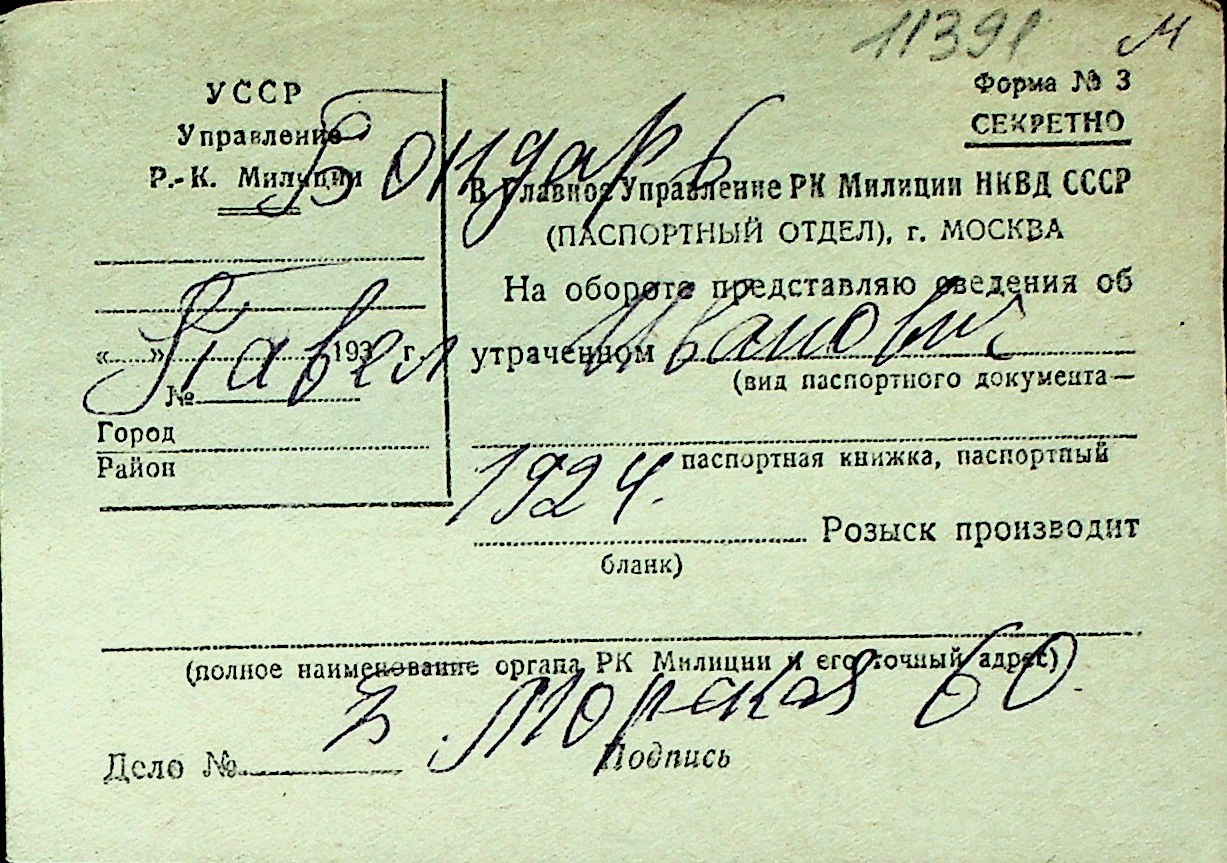 11391 М
УССР
Управление
Р.-К. Милиции
Форма № 3
СЕКРЕТНО
Бондарь
В Главное Управление РК Милиции НКВД СССР
(ПАСПОРТНЫЙ ОТДЕЛ), г. МОСКВА
На обороте представляю сведения об
Павел Иванович
«......»..................193 г.
№
утраченном
(вид паспортного документа—
Город
Район
паспортная книжка, паспортный
1924.
Розыск производит
бланк)
(полное наименование органа РК Милиции и его точный адрес)
3. Морская 60.
Дело №
Подпись